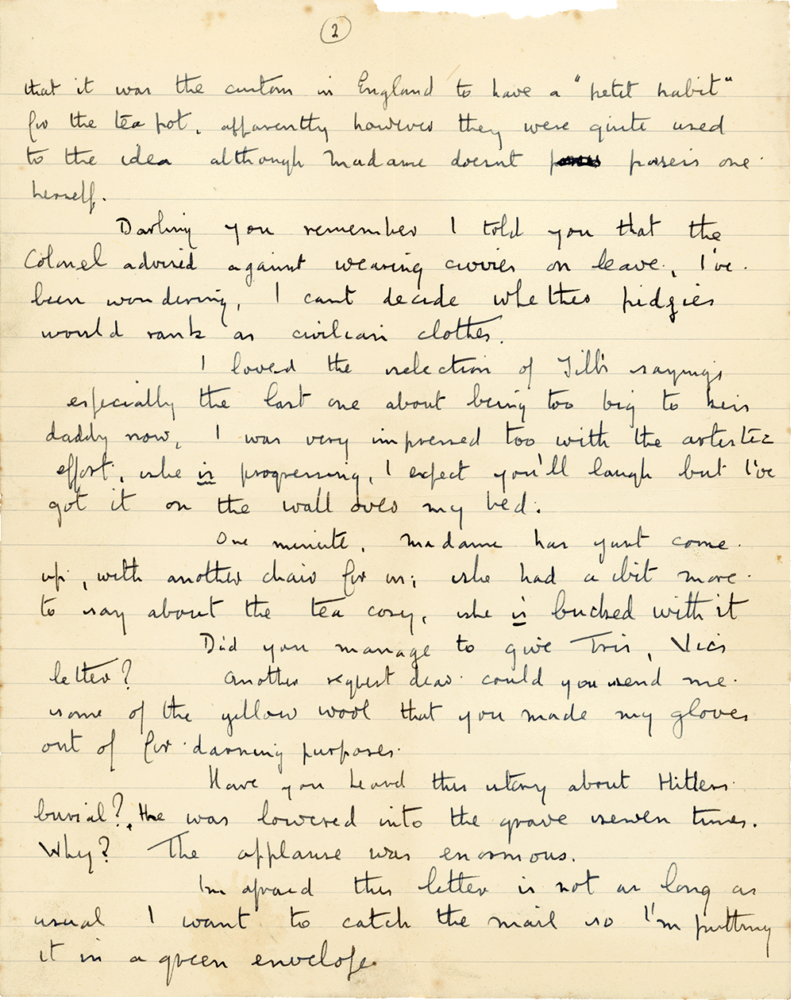 2
that it was the custom in England to have a "petit habit"
for the tea pot, apparently however they were quite used
to the idea although Madame doesnt possess one.
herself.
Darling you remember I told you that the
Colonel advised against wearing civvies on leave, I've.
been wondering, I cant decide whether pidgies
would rank as civilian clothes.
I loved the selection of Jill's sayings
especially the last one about being too big to kiss
daddy now, I was very impressed too with the artistic
effort, she is progressing, I expect you'll laugh but I've
got it on the wall over my bed.
One minute, Madame has just come.
up, with another chair for us; she had a bit more.
to say about the tea cosy, she is bucked with it
Did you manage to give Tris, Vic's
letter? Another request dear could you send me.
some of the yellow wool that you made my gloves
out of for darning purposes.
Have you heard this story about Hitlers.
burial? He was lowered into the grave seven times.
Why? The applause was enormous.
I'm afraid this letter is not as long as
usual I want to catch the mail so I'm putting
it in a green envelope.